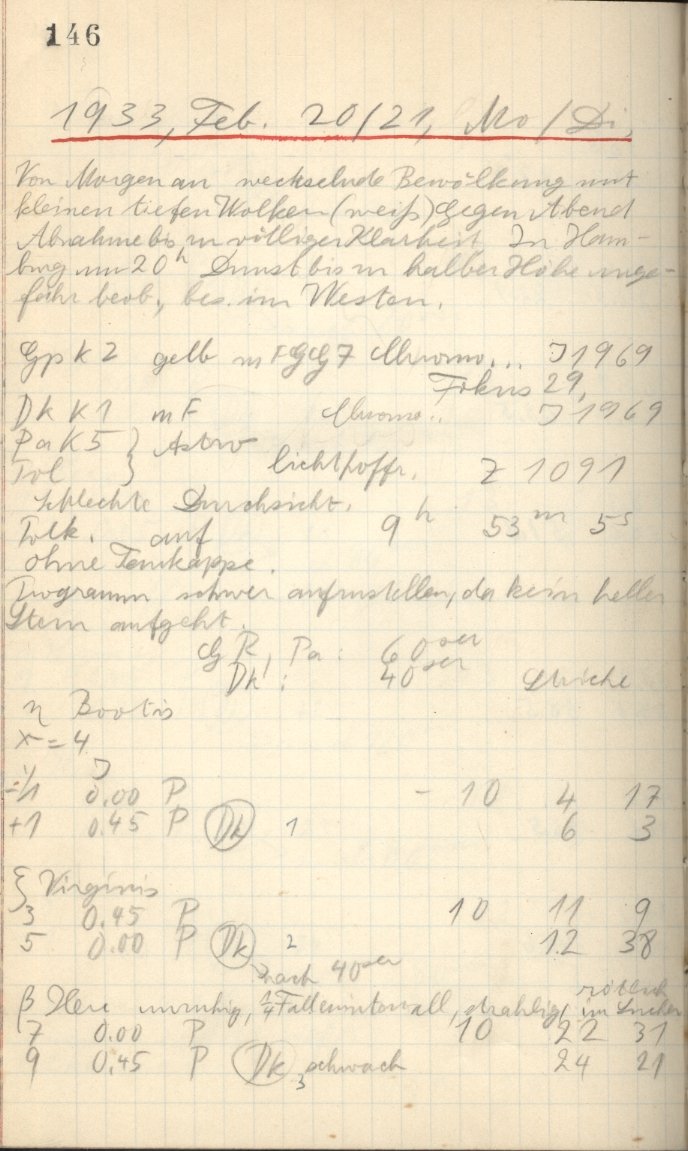 146
1933, Feb. 20/21, Mo/Di.
Von Morgen an wechselnde Bewölkung mit
kleinen tiefen Wolken (weiß) Gegen Abend
Abnahme bis zu völliger Klarheit In Ham-
burg um 20h Dunst bis zu halber Höhe unge-
fähr beob., bes. im Westen.
Gp K2 gelb m F GG7 Chromo... J1969
Fokus 29,
Dk K1 m F Chromo.. J1969
Pa K5 } Astro
Tol } lichthoffr. Z 1091
schlechte Durchsicht.
Tolk. auf 9h 53m 5s
ohne Taukappe.
Programm schwer aufzustellen, da kein heller
Stern aufgeht.
GR, Pa: 60 sec
Dk: 40 sec Striche
η Bootis
x=4
y J
-1 0.00 P - 10 4 17
+1 0.45 P Dk 1 6 3
ξ Virginis
3 0.45 P 10 11 9
5 0.00 P Dk 2 12 38
nach 40sec
rötlich
β Herc unruhig, 1/4 Fadenintervall, strahlig, im Sucher
7 0.00 P 10 22 31
9 0.45 P Dk 3 schwach 24 21